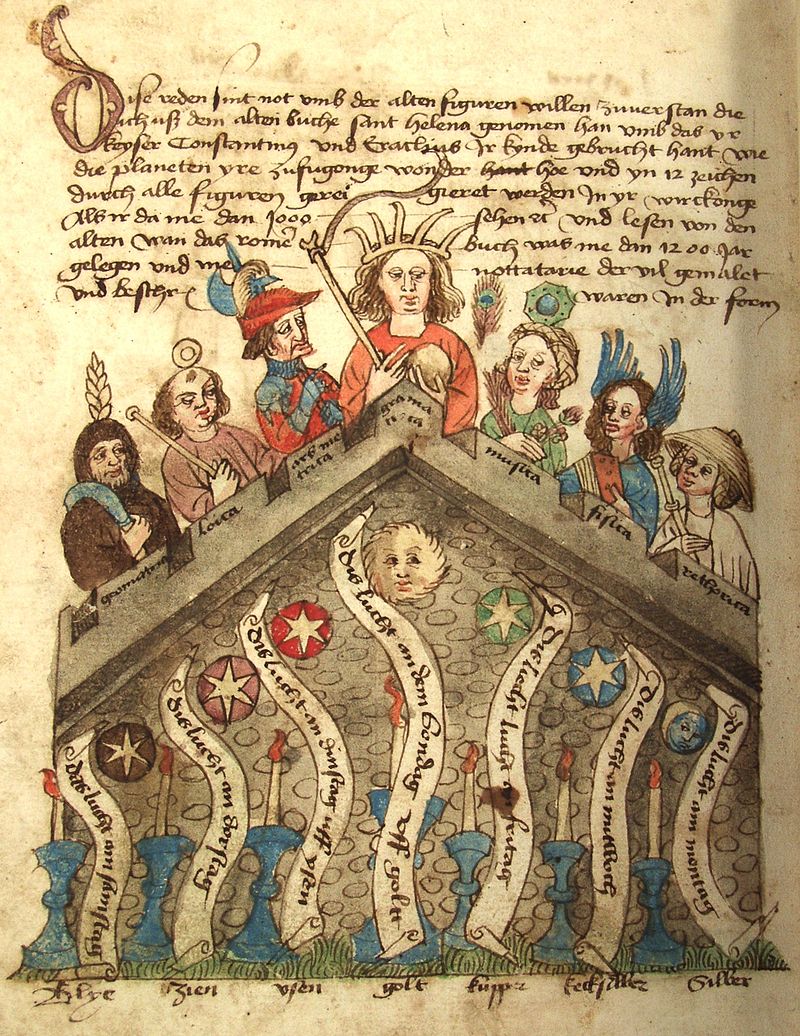 Dise reden sint not vmb der alten figuren willen zuuerstan die
ich vß dem alten buche sant Helena genomen han vmb das yr
keyser Constantinus vnd Eraclius Ir kynde gebrucht hant wie
die planeten yre zufugonge von der hant hoe vnd yn 12 zeichen
durch alle figuren gerei gieret werden In yr wirckonge
Als ir da me dan 1000 sehen vnd lesen von den
alten wan das romer buch was me dan 1200 Jar
gelegen vnd me nottatarie der vil gemalet
vnd beschr waren In der form
grama
tica
ars me
trica
musica
loica
fisica
geometria
rethorica
das lucht am samstag
dis lucht an dorstag
dis lucht an dinstag vff ysen
dis lucht an dem sondag vff golt
die licht lucht an fritag
Die lucht am mitwoch
Die lucht am montag
Blye zien ysen golt kupper kecksilber Silber